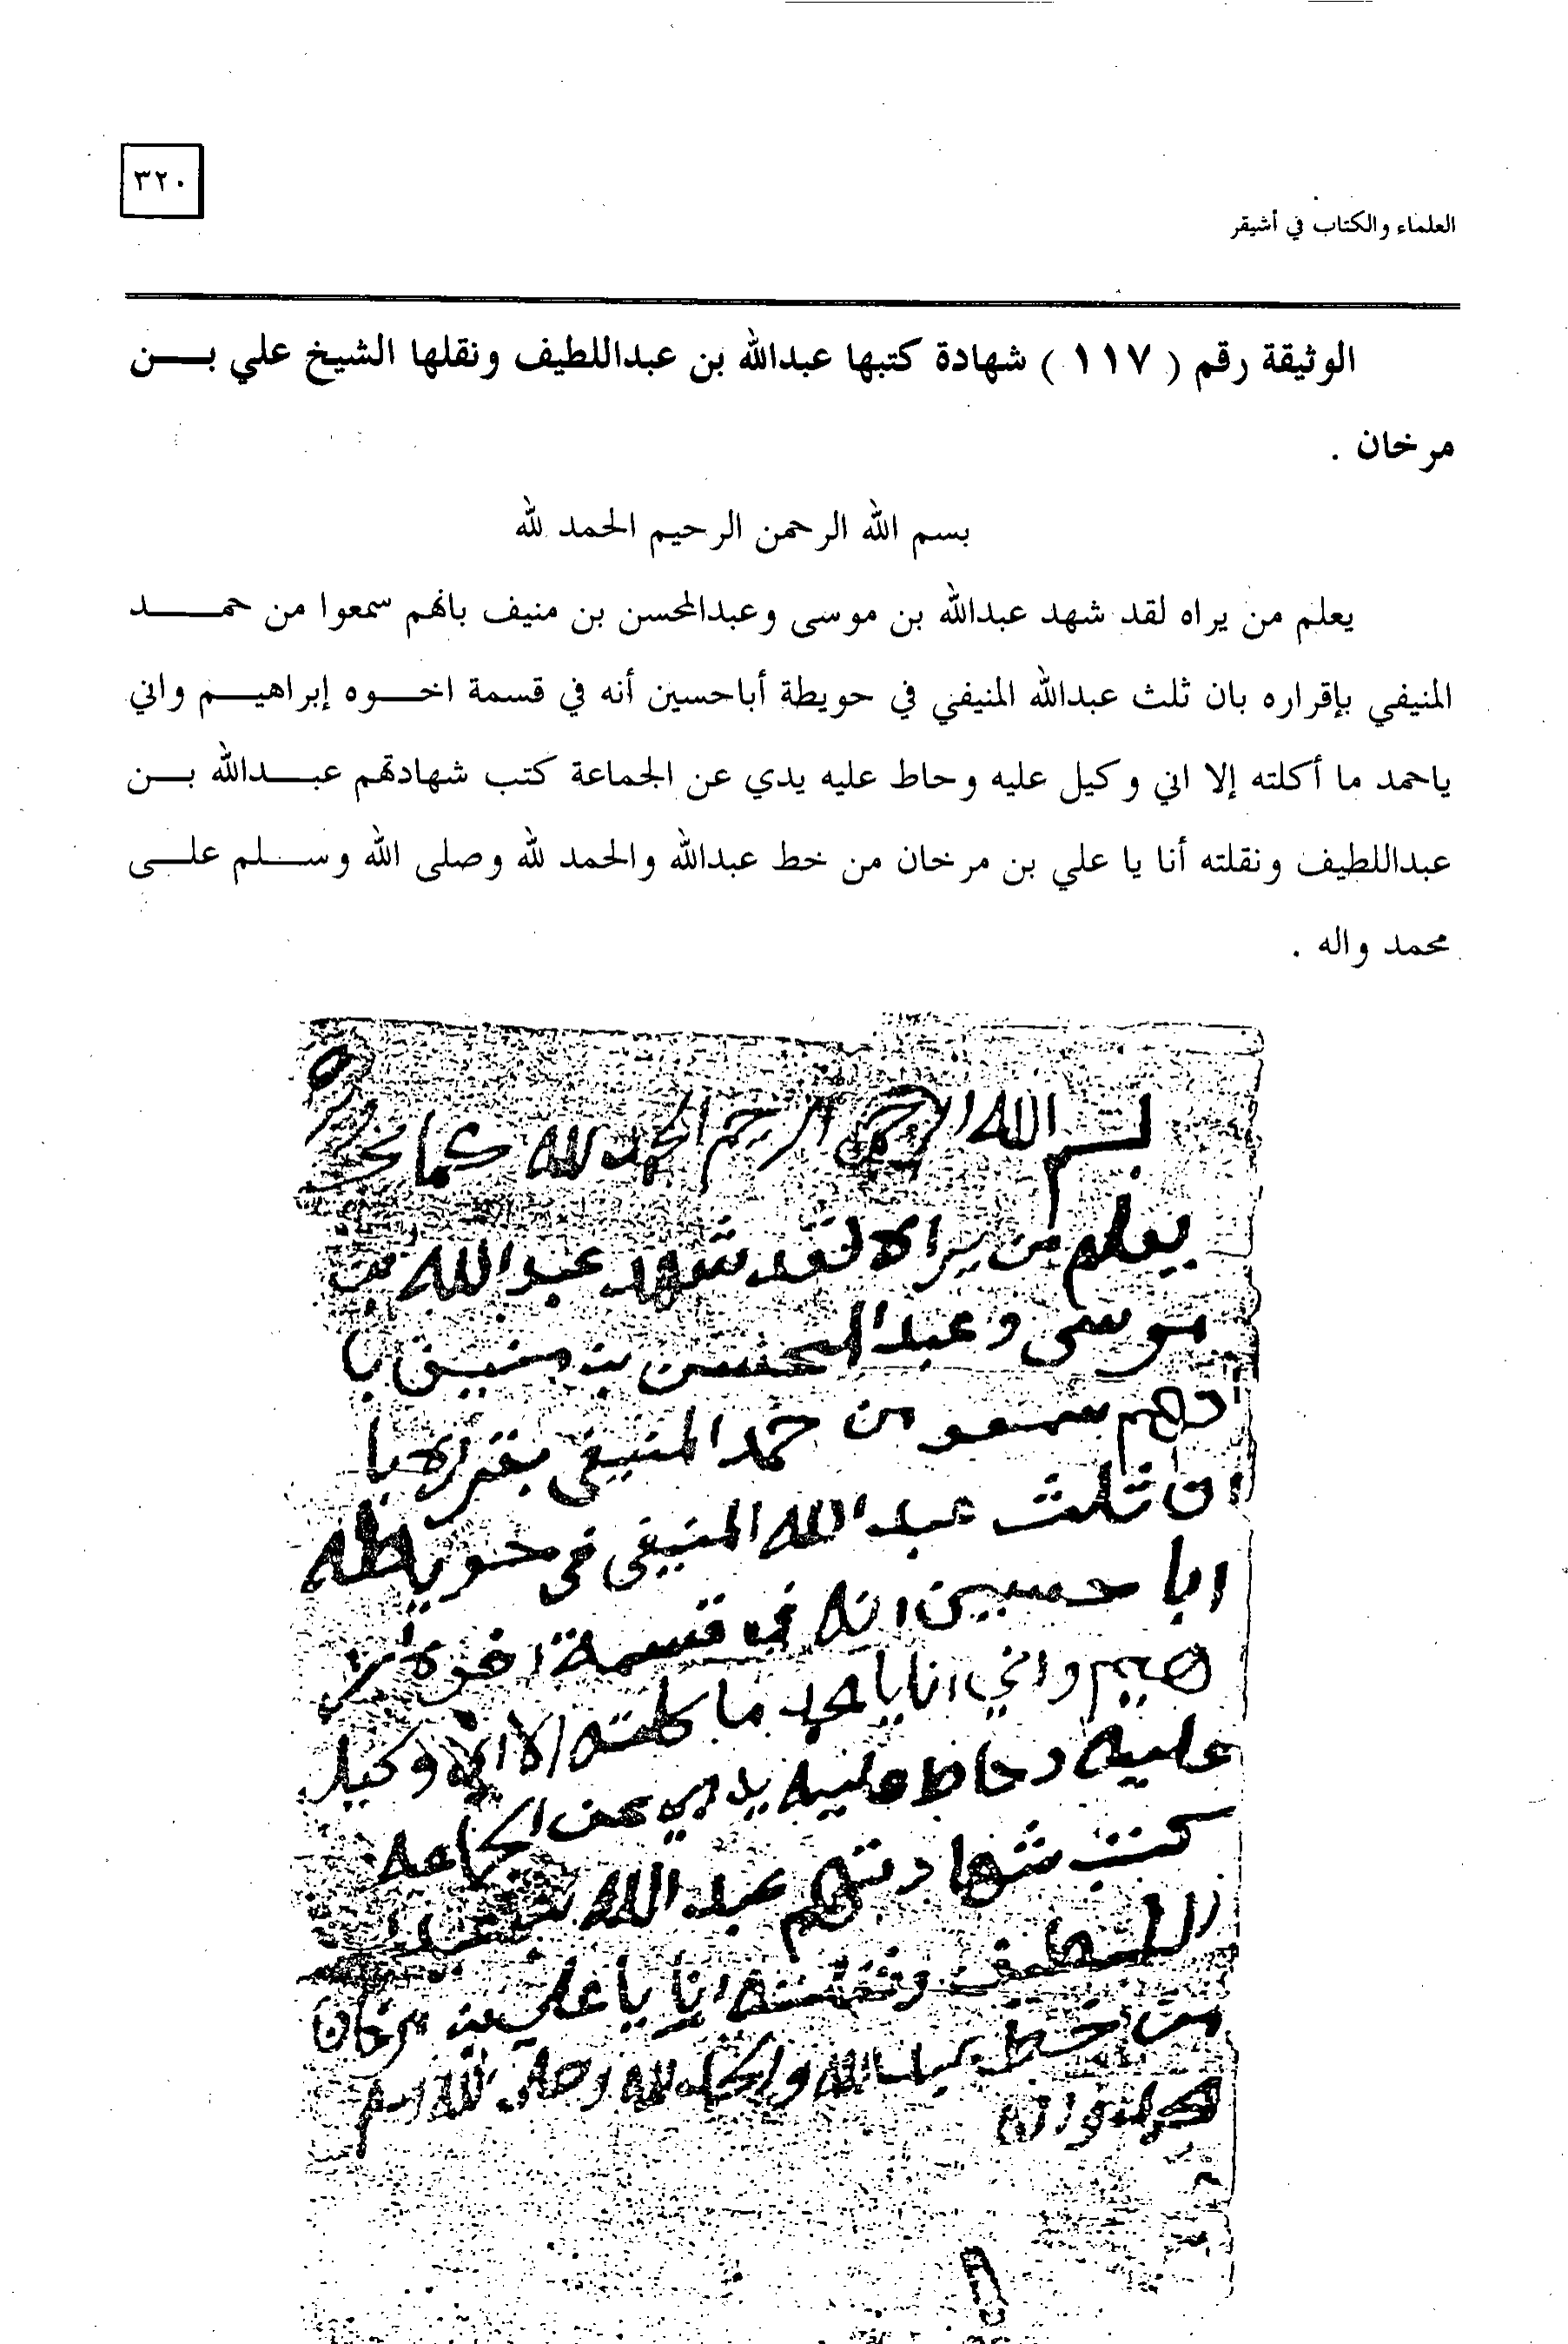 ٣٢٠
العلماء والكتاب في أشيقر
الوثيقة رقم ( ١١٧ ) شهادة كتبها عبدالله بن عبداللطيف ونقلها الشيخ علي بن
مرخان .
بسم الله الرحمن الرحيم الحمد لله
يعلم من يراه لقد شهد عبدالله بن موسى وعبدالمحسن بن منيف بانهم سمعوا من حمد
المنيفي بإقراره بان ثلث عبدالله المنيفي في حويطة أباحسين أنه في قسمة اخوه إبراهيم واني
ياحمد ما أكلته إلا اني وكيل عليه وحاط عليه يدي عن الجماعة كتب شهادتهم عبدالله بن
عبداللطيف ونقلته أنا يا علي بن مرخان من خط عبدالله والحمد لله وصلى الله وسلم على
محمد واله .
بسم الله الرحمن الرحيم الحمد لله كما
يعلم من يراه لقد شهد عبد الله بن
موسى وعبد المحسن بن منيف با
نهم سمعو من حمد المنيفي بقراره با
ان ثلث عبد الله المنيفي في حويطه
ابا حسين انه في قسمة اخوه ابرا
هيم واني انا يا حمد ما كلته الا اني وكيل
عليه وحاط عليه يدي عن الجماعه
كتب شهادتهم عبد الله بن عبد
اللطيف ونقلته انا يا علي بن مرخان
من خط عبد الله والحمد لله وصلى الله وسلم